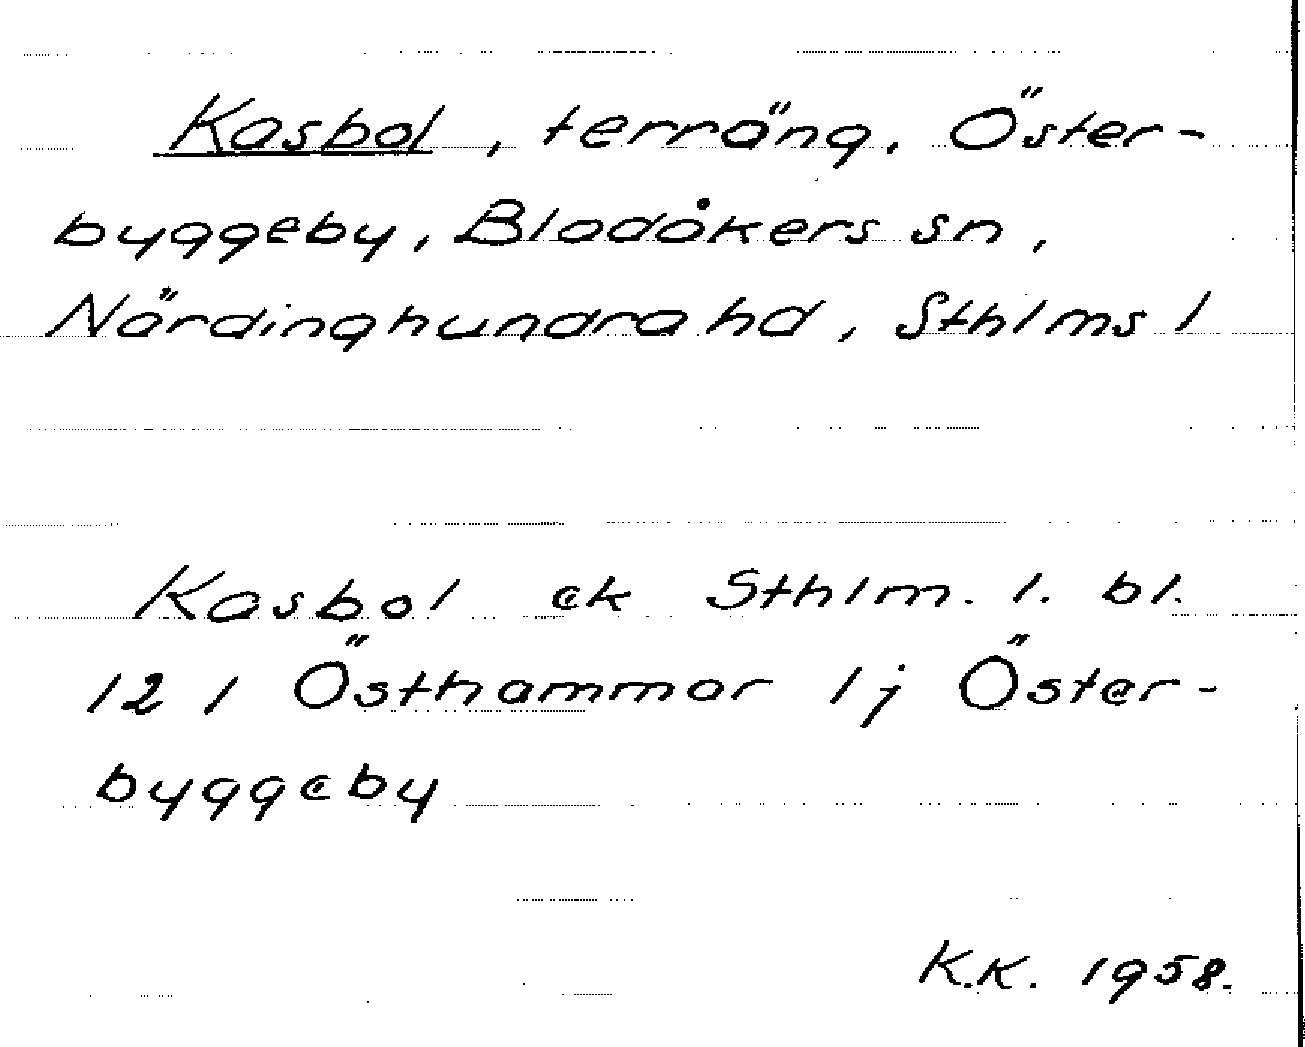 Kasbol, terräng, Öster-
byggeby, Bladåkers sn,
Närdinghundra hd, Sthlms l
Kasbol ek Sthlm. l. bl.
121 Östhammar 1j Öster-
byggeby
K.K. 1958.